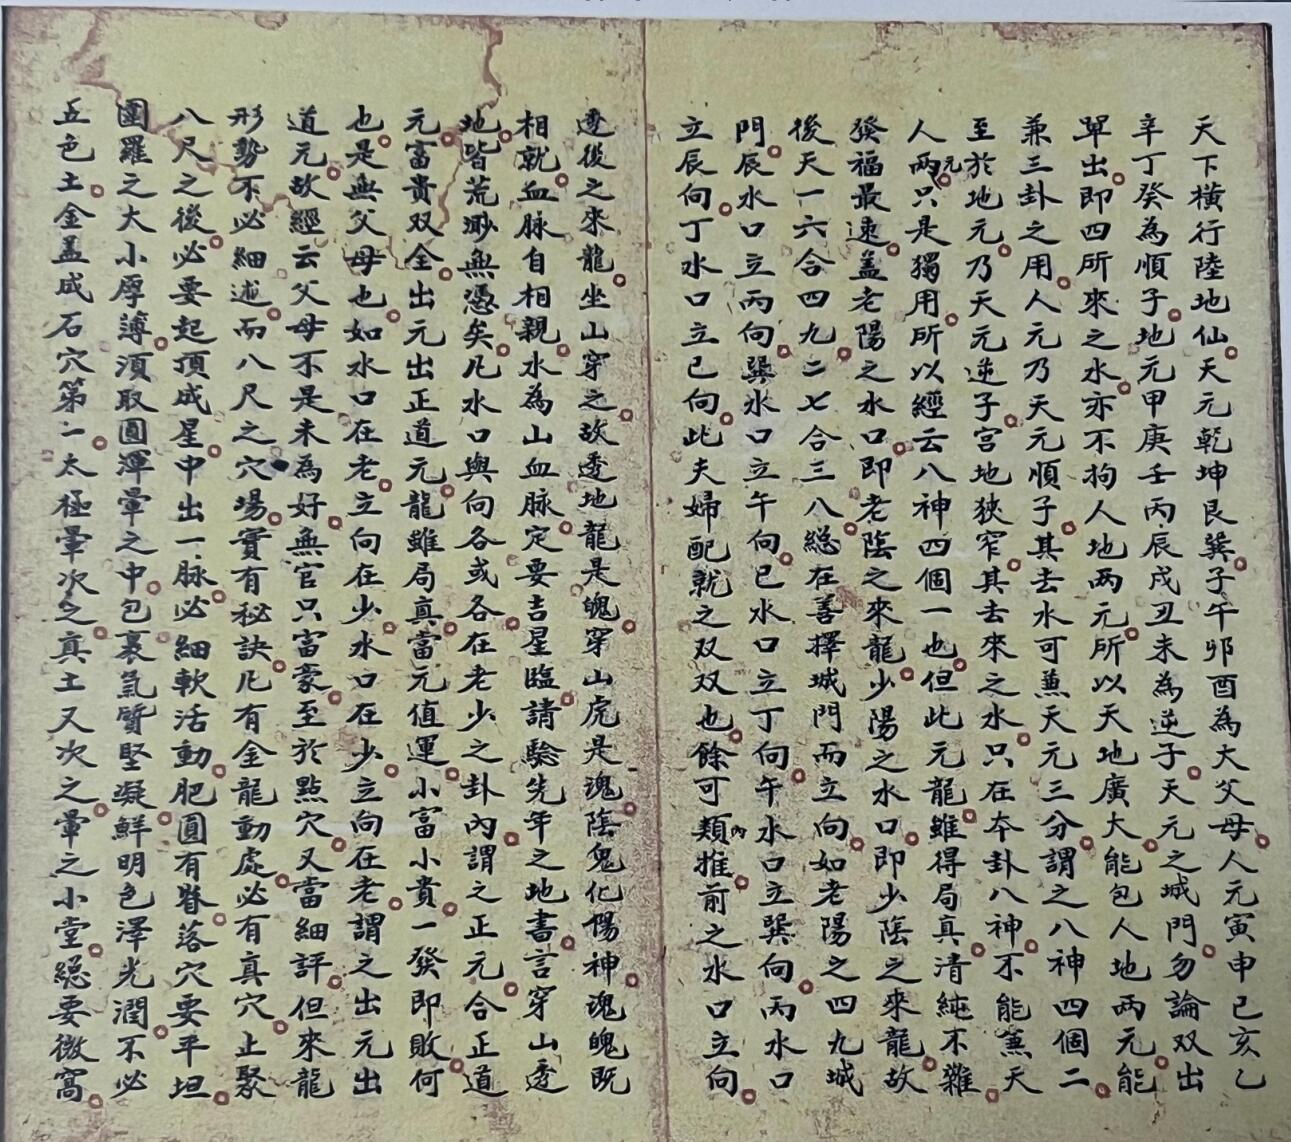 天下橫行陸地仙天元乾坤艮巽子午卯酉為大父母人元寅申巳亥乙
辛丁癸為順子地元甲庚壬丙辰戌丑未為逆子天元之城門勿論双出
單出即四所來之水亦不拘人地两元所以天地廣大能包人地两元能
兼三卦之用人元乃天元順子其去水可兼天元三分謂之八神四個二
至於地元乃天元逆子宮地狹窄其去來之水只在夲卦八神不能兼天
人两元只是獨用所以經云八神四個一也但此元龍雖得局真清純不雜
發福最速盖老陽之水口即老陰之來龍少陽之水口即少陰之來龍故
後天一六合四九二七合三八総在善擇城門而立向如老陽之四九城
門辰水口立丙向巽水口立午向巳水口立丁向午水口立巽向丙水口
立辰向丁水口立巳向此夫婦配就之双双也餘可類推前之水口立向
透後之來龍坐山穿之故透地龍是魄穿山虎是魂陰鬼化陽神魂魄既
相就血脉自相親水為山血脉定要吉星臨請驗先年之地書言穿山透
地皆荒渺無憑矣凡水口與向各或各在老少之卦內謂之正元合正道
元富貴双全出元出正道元龍雖局真當元值運小富小貴一發即敗何
也是無父母也如水口在老立向在少水口在少立向在老謂之出元出
道元故經云父母不是未為好無官只富豪至於點穴又當細評但來龍
形勢不必細述而八尺之穴場實有秘訣凡有金龍動處必有真穴止聚
八尺之後必要起頂成星中出一脉必細軟活動肥圓有脊落穴要平坦
圍羅之大小厚薄湏取圓渾暈之中包裹氣質堅凝鮮明色澤光潤不必
五色土金盖成石穴第一太極暈次之真土又次之暈之小堂緫要微窩